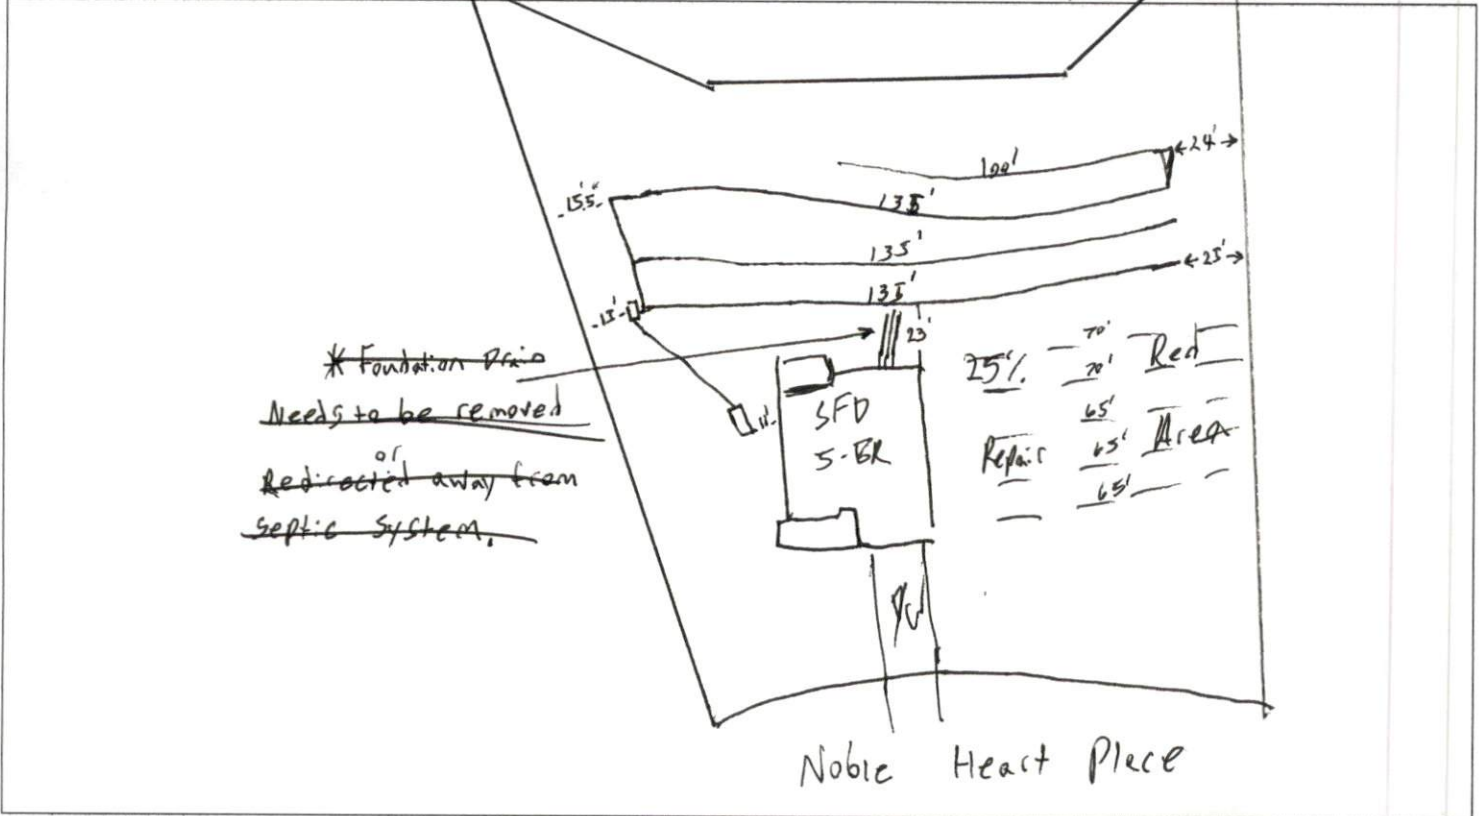 100'
24'
15.5'
135'
135'
25'
135'
15'
23'
* Foundation Drain
Needs to be removed
or
Redirected away from
Septic System.
11'
SFD
5-BR
25% 70' Red
70'
65' Area
Repair 65'
65'
Noble Heart Place